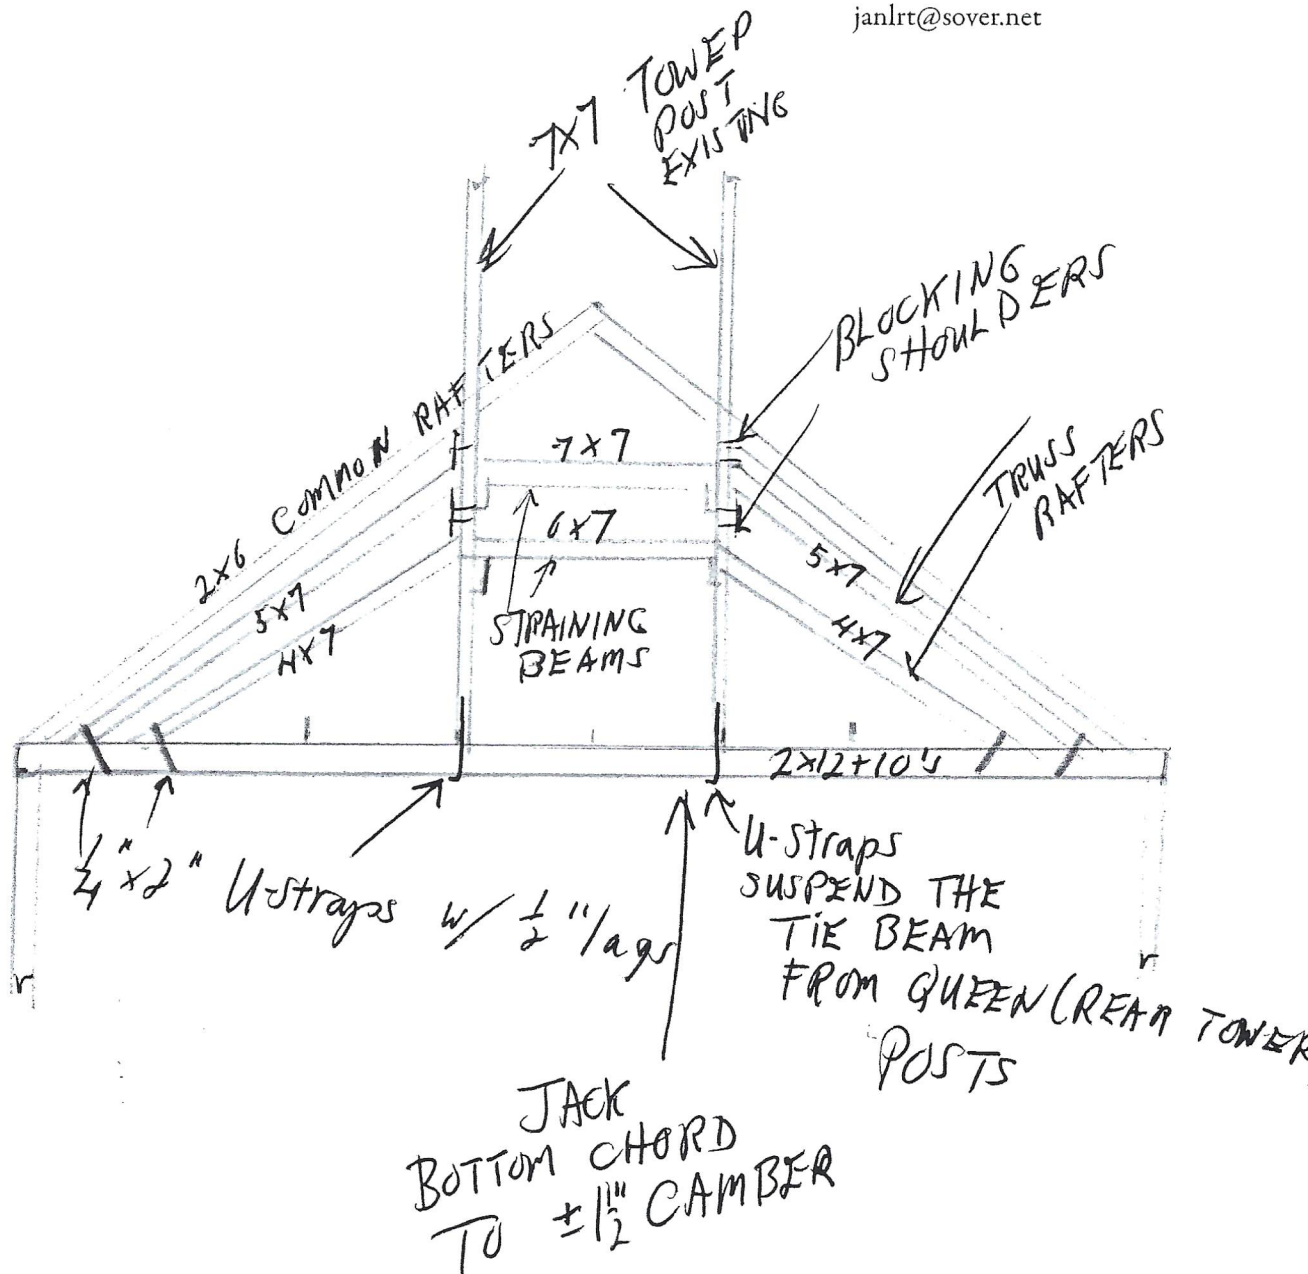 janlrt@sover.net
7x7 TOWER
POST
EXISTING
BLOCKING
SHOULDERS
2x6 COMMON RAFTERS
7x7
TRUSS
RAFTERS
6x7
5x7
5x7
4x7
4x7
STRAINING
BEAMS
2x12+10's
1/4" x 2" U-straps w/ 1/2" lags
U-straps
SUSPEND THE
TIE BEAM
FROM QUEEN (REAR TOWER
POSTS
JACK
BOTTOM CHORD
TO ±1 1/2" CAMBER